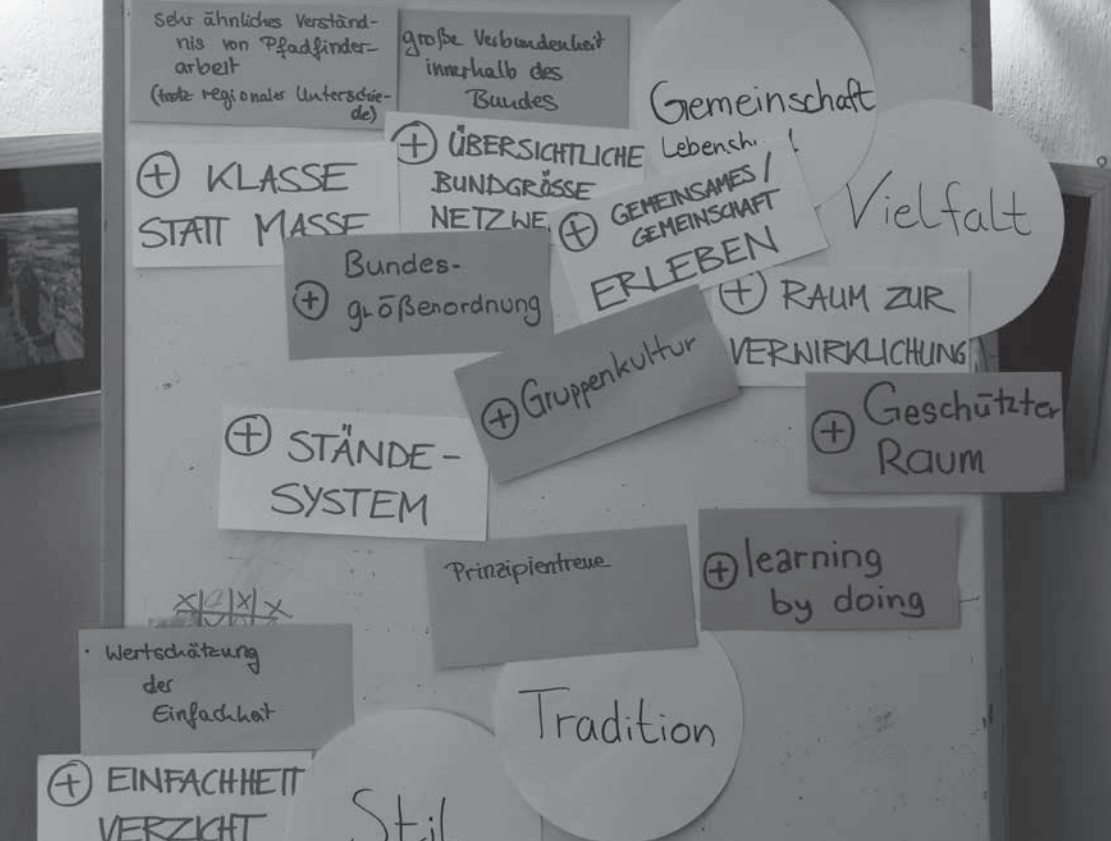 sehr ähnliches Verständ-
nis von Pfadfinder-
arbeit
(trotz regionaler Unterschie-
de)
große Verbundenheit
innerhalb des
Bundes
Gemeinschaft
Vielfalt
+ KLASSE
STATT MASSE
+ ÜBERSICHTLICHE
BUNDGRÖSSE
+ GEMEINSAMES /
GEMEINSCHAFT
ERLEBEN
+ Bundes-
größenordnung
+ RAUM ZUR
VERWIRKLICHUNG
+ Gruppenkultur
+ Geschützter
Raum
+ STÄNDE-
SYSTEM
Prinzipientreue
+ learning
by doing
· Wertschätzung
der
Einfachheit
Tradition
+ EINFACHHEIT
VERZICHT
Stil